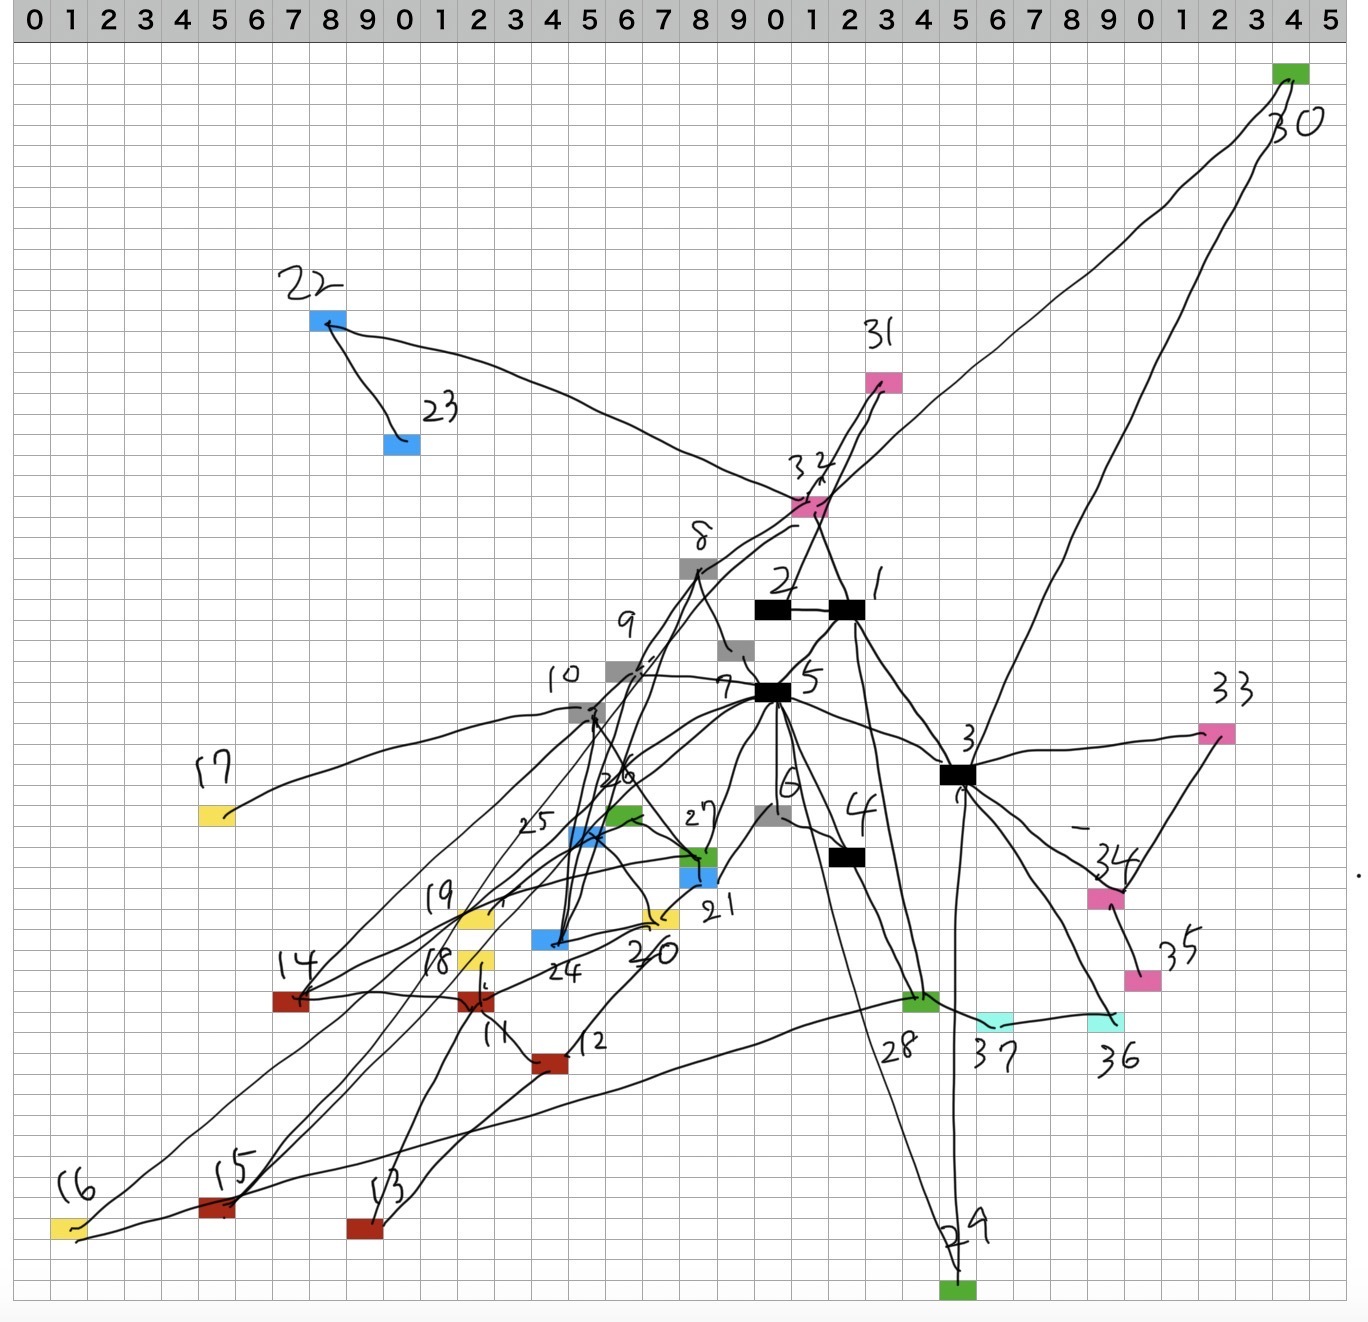 0 1 2 3 4 5 6 7 8 9 0 1 2 3 4 5 6 7 8 9 0 1 2 3 4 5 6 7 8 9 0 1 2 3 4 5
30
22
31
23
32
8
2 1
9
10 7 5
33
3
17
26 6
25 27 4
34
19 21
18 24 20 35
14
11 12 28 37 36
16 15 13
29